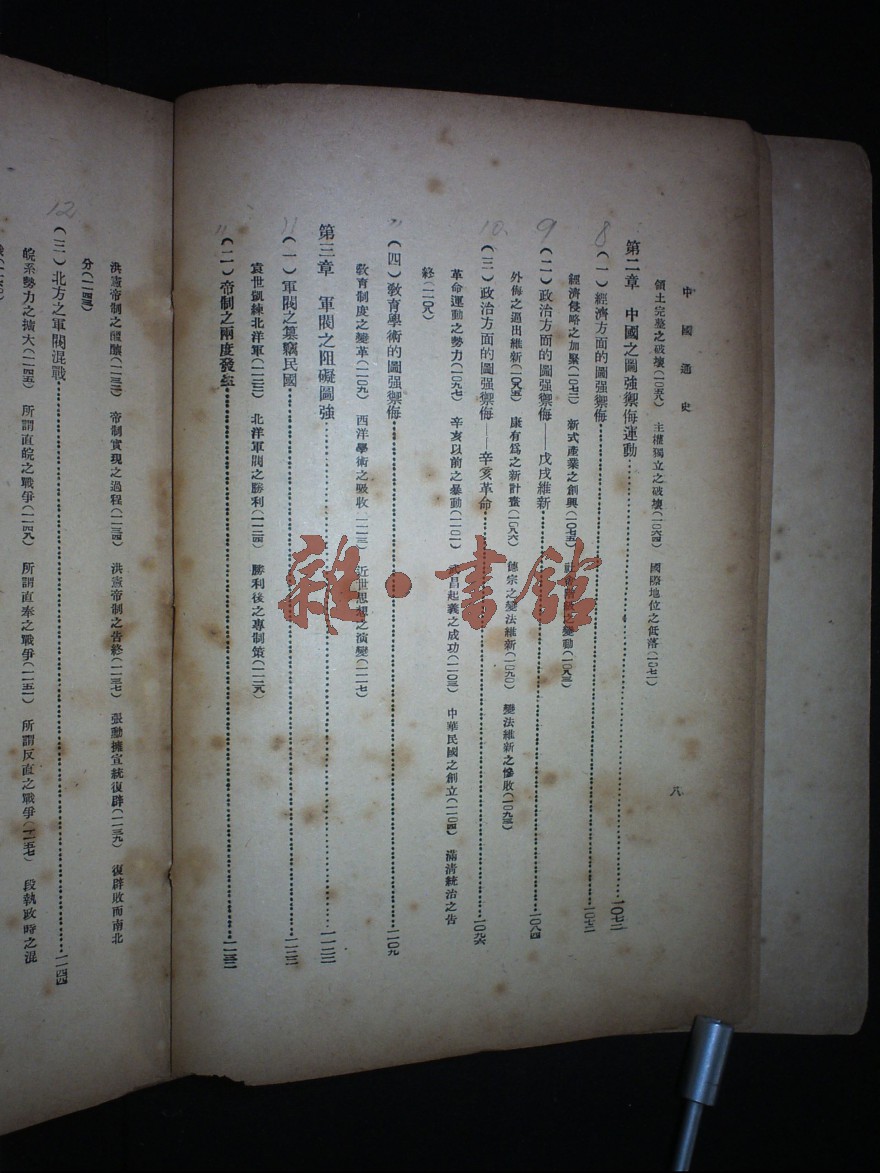 中國通史
八
領土完整之破壞(一〇五八) 主權獨立之破壞(一〇六四) 國際地位之低落(一〇七一)
第二章 中國之圖強禦侮運動……一〇七二
8
(一)經濟方面的圖强禦侮……一〇七二
經濟侵略之加緊(一〇七二) 新式產業之創興(一〇七五) 之變動(一〇八三)
9
(二)政治方面的圖强禦侮——戊戌維新……一〇八四
外侮之逼出維新(一〇八五) 康有爲之新計畫(一〇八六) 德宗之變法維新(一〇九〇) 變法維新之慘敗(一〇九三)
10
(三)政治方面的圖强禦侮——辛亥革命……一〇九六
革命運動之勢力(一〇九七) 辛亥以前之暴動(一一〇一) 武昌起義之成功(一一〇三) 中華民國之創立(一一〇四) 滿清統治之告
終(一一〇八)
(四)敎育學術的圖强禦侮……一一〇九
敎育制度之變革(一一〇九) 西洋學術之吸收(一一一三) 近世思想之演變(一一一七)
第三章 軍閥之阻礙圖強……一一二二
11
(一)軍閥之篡竊民國……一一二二
袁世凱練北洋軍(一一二二) 北洋軍閥之勝利(一一二四) 勝利後之專制策(一一二九)
11
(二)帝制之兩度發生……一一三二
洪憲帝制之醞釀(一一三二) 帝制實現之過程(一一三四) 洪憲帝制之告終(一一三七) 張勳擁宣統復辟(一一三九) 復辟敗而南北
分(一一四三)
12
(三)北方之軍閥混戰……一一四四
皖系勢力之擴大(一一四五) 所謂直皖之戰爭(一一四八) 所謂直奉之戰爭(一一五一) 所謂反直之戰爭(一一五七) 段執政時之混
雜·書館